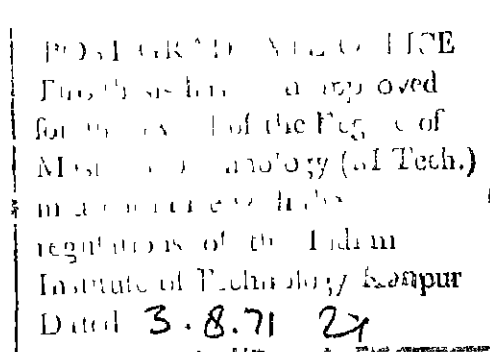 POST GRADUATE OFFICE
This thesis has been approved
for the award of the Degree of
Master of Technology (M Tech.)
in accordance with the
regulations of the Indian
Institute of Technology Kanpur
Dated 3.8.71 24